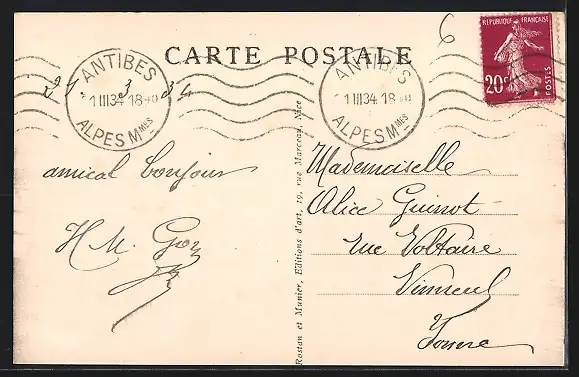 6
CARTE POSTALE
RÉPUBLIQUE FRANÇAISE
20c
POSTES
ANTIBES
1 III 34 18
ALPES Mmes
ANTIBES
1 III 34 18
ALPES Mmes
3 34
amical bonjour
H M.
Mademoiselle
Alice Guinot
Rue Voltaire
Yonne
Rostan et Munier, Editions d'art, 19, rue Marceau, Nice